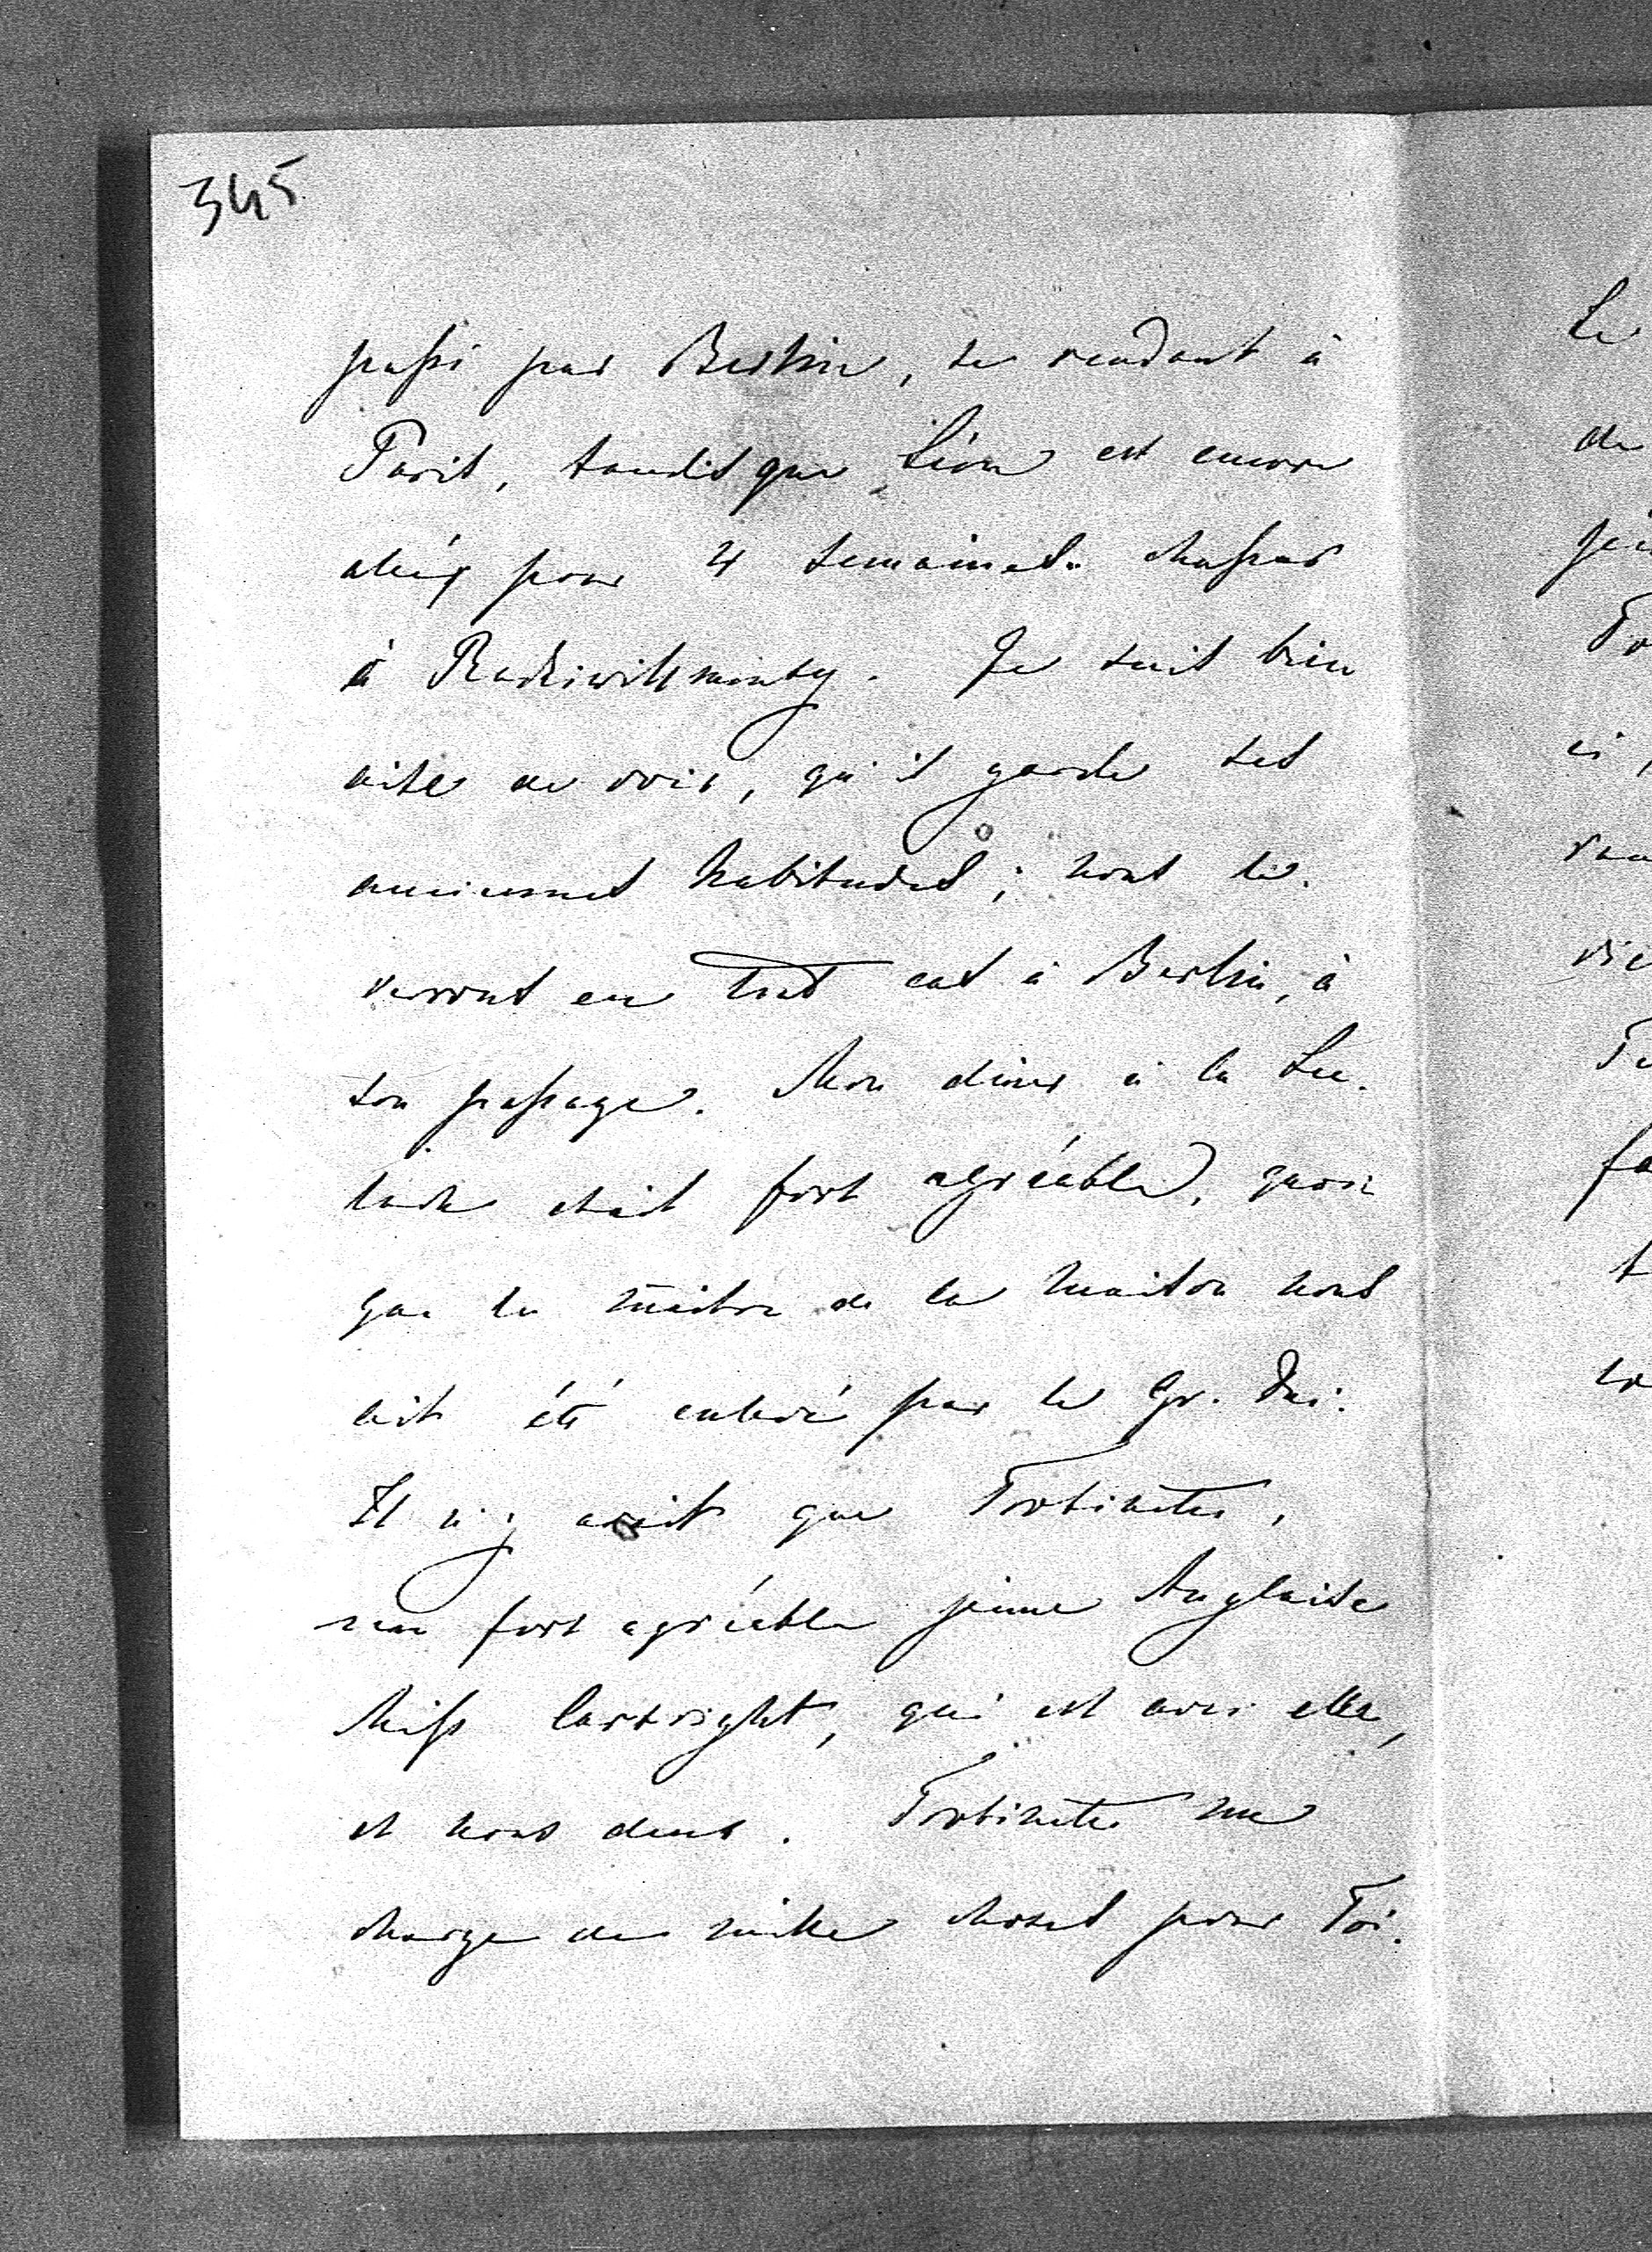 345
passé par Berlin, se rendant à
Paris, tandisque Léon est encore
allé pour 4 semaines chasser
à Radziwillmonty. Je suis bien
aise de voir, qu'il garde ses
anciennes habitudes; nous le
verrons en tout cas à Berlin, à
son passage. Mon diner à la
était fort agréable, quoi
que le maître de la maison nous
ait été enlevé par le Gr. Duc.
Il n'y avait que
une fort agréable jeune Anglaise
Miss Cartright, qui est avec elle,
et nous deux. me
charge de mille choses pour Toi.
Le
de